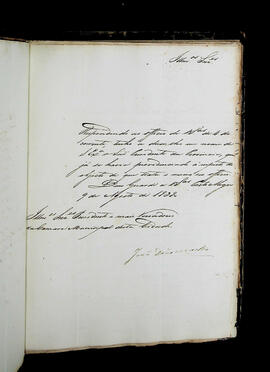 Illm.os Snr.es
Respondendo ao officio de V.Sas de 6 do
corrente, tenho a dizer-lhes em nome de
S. Exa o Snr Presidente da Provincia, que
já se havia providenciado á respeito do
objecto de que trata o mesmo officio.
Deos Guarde a V.Sas
9 de Agosto de 1882.
Illm.os Snr.es Presidente e mais Vereadores
da Camara Municipal desta Cidade